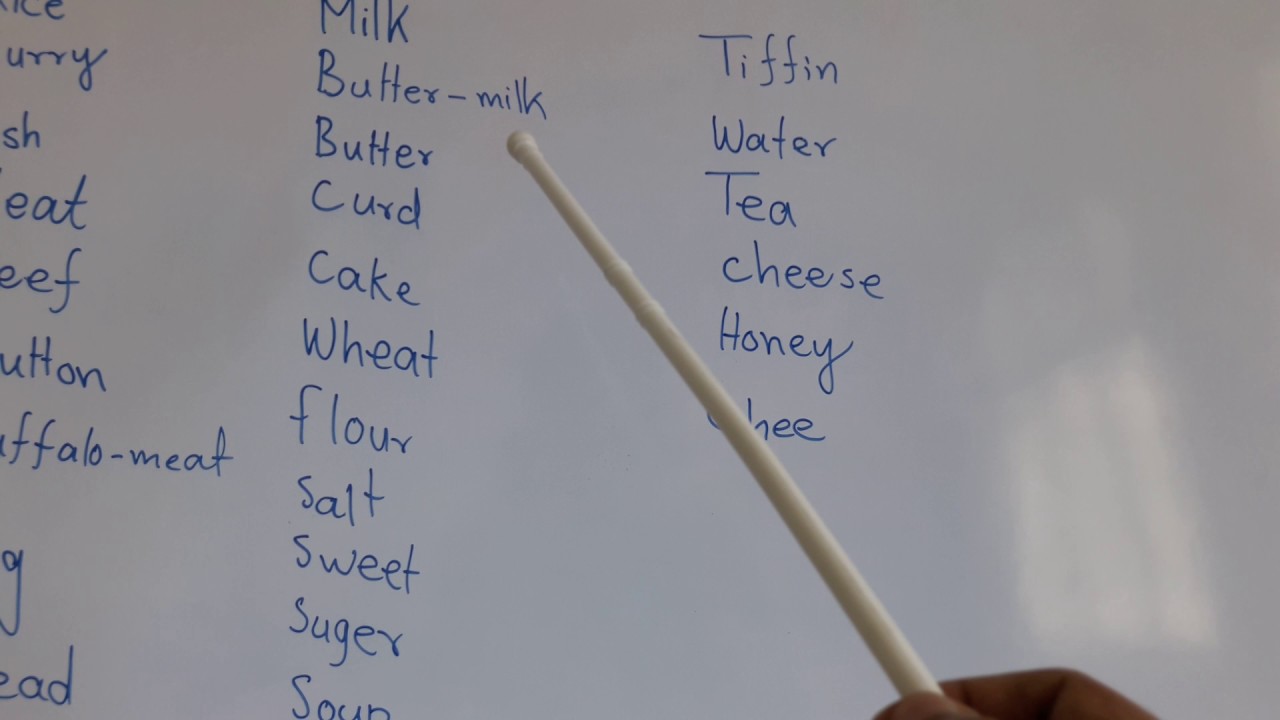 urry
sh
eat
eef
utton
uffalo-meat
g
ead
Milk
Butter-milk
Butter
Curd
Cake
Wheat
flour
Salt
Sweet
Suger
Soup
Tiffin
Water
Tea
cheese
Honey
hee